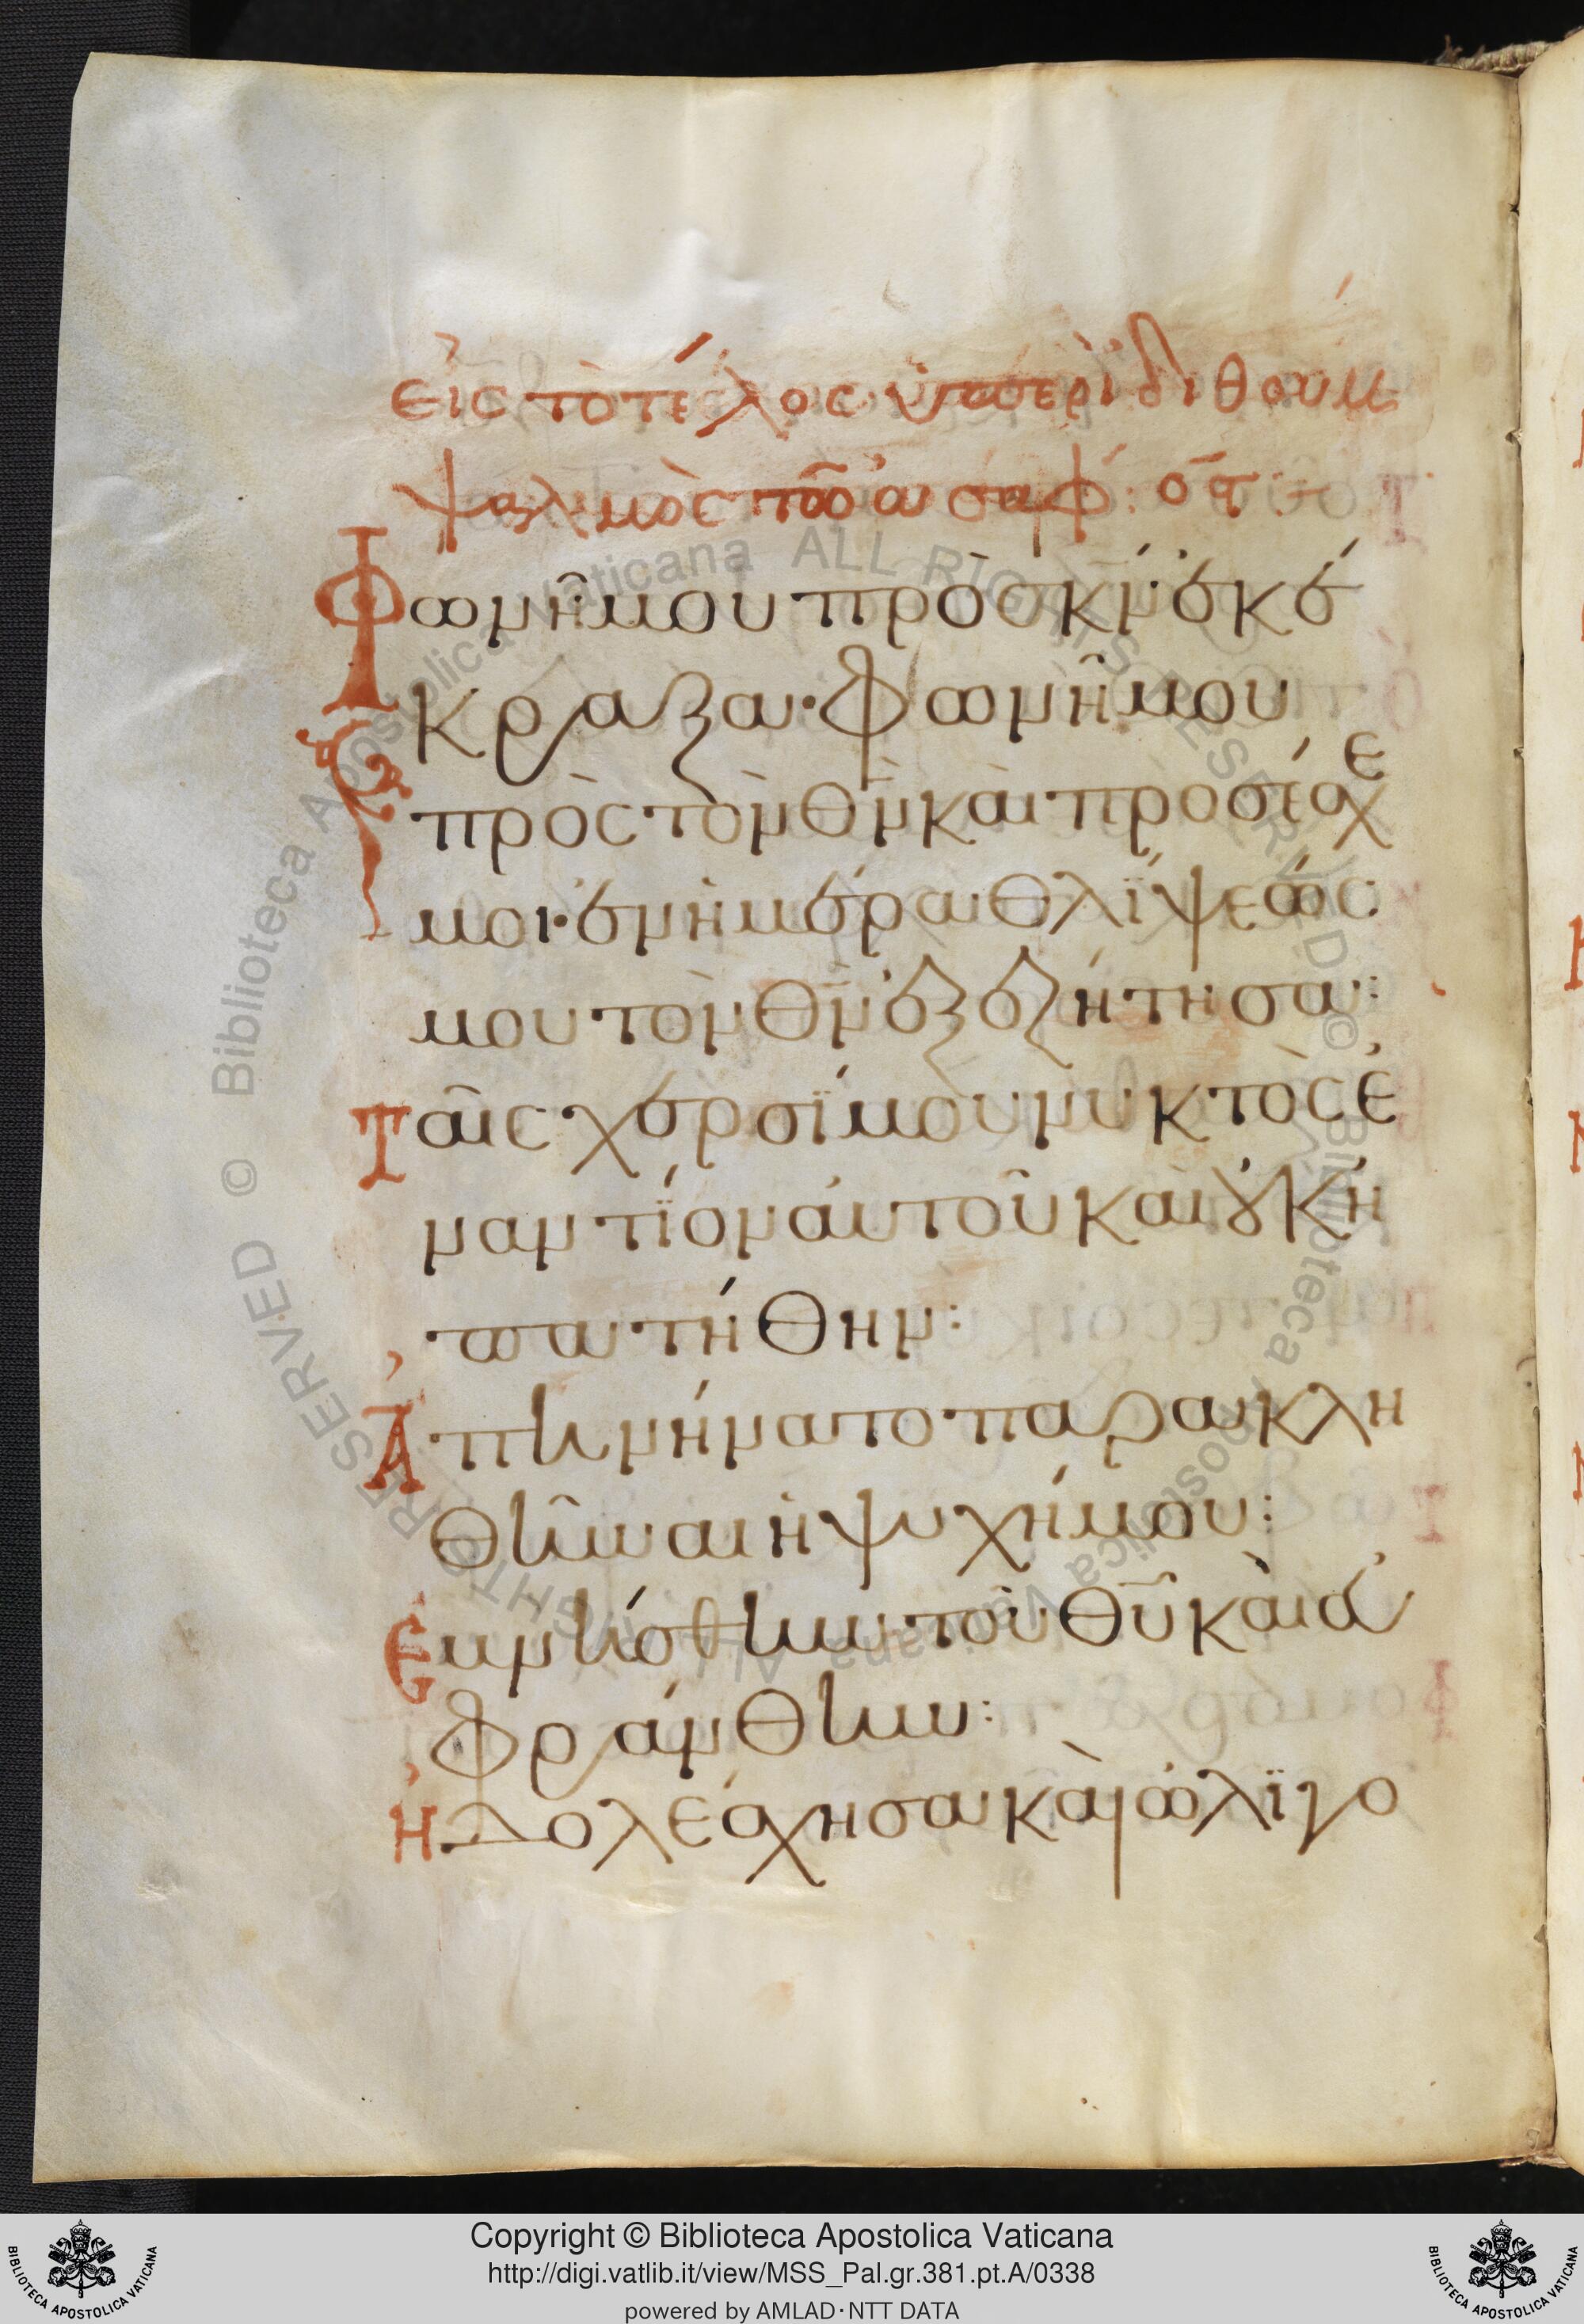 εἰς τὸ τέλος· ὑπὲρ ἰδιθουμ
ψαλμὸς τῶ ἀσαφ: ο̅ς̅:
Φωνῆ μου πρὸς κ̅ν̅ ἐκέ
κραξα· φωνῆ μου
πρὸς τὸν θ̅ν̅ καὶ προσέσχε
μοι· ἐν ἡμέρα θλίψεώς
μου τὸν θ̅ν̅ ἐξεζήτησα:
Ταῖς χερσί μου νυκτὸς ἐ
ναντίον αὐτοῦ καὶ οὐκ ἠ
πατήθην:
Ἀπηνήνατο παρακλη
θῆναι ἡ ψυχή μου:
Ἐμνήσθην τοῦ θ̅υ̅ καὶ εὐ
φράνθην:
Ἠδολέσχησα καὶ ὠλιγο
Copyright © Biblioteca Apostolica Vaticana
http://digi.vatlib.it/view/MSS_Pal.gr.381.pt.A/0338
powered by AMLAD·NTT DATA
BIBLIOTECA APOSTOLICA VATICANA
BIBLIOTECA APOSTOLICA VATICANA